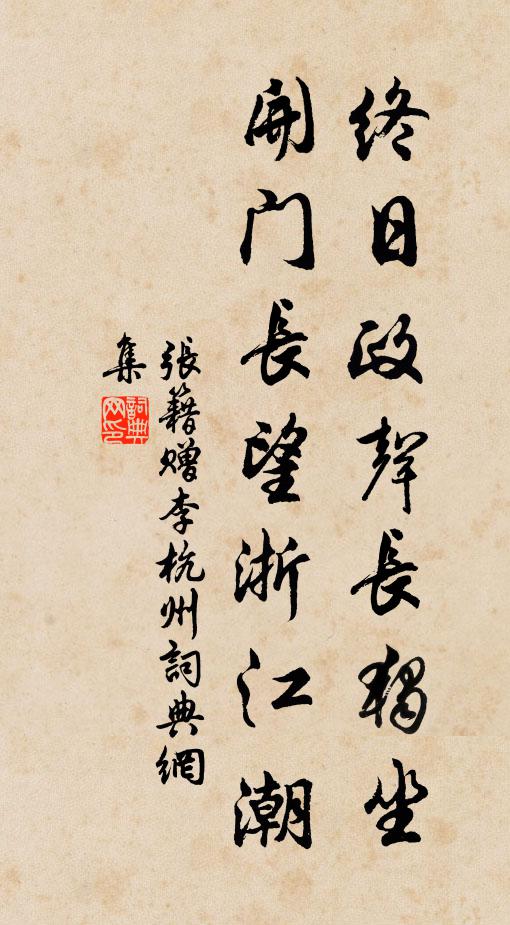 終日政聲長獨坐
開門長望浙江潮
張籍贈李杭州詞典網
集
詞典
网印